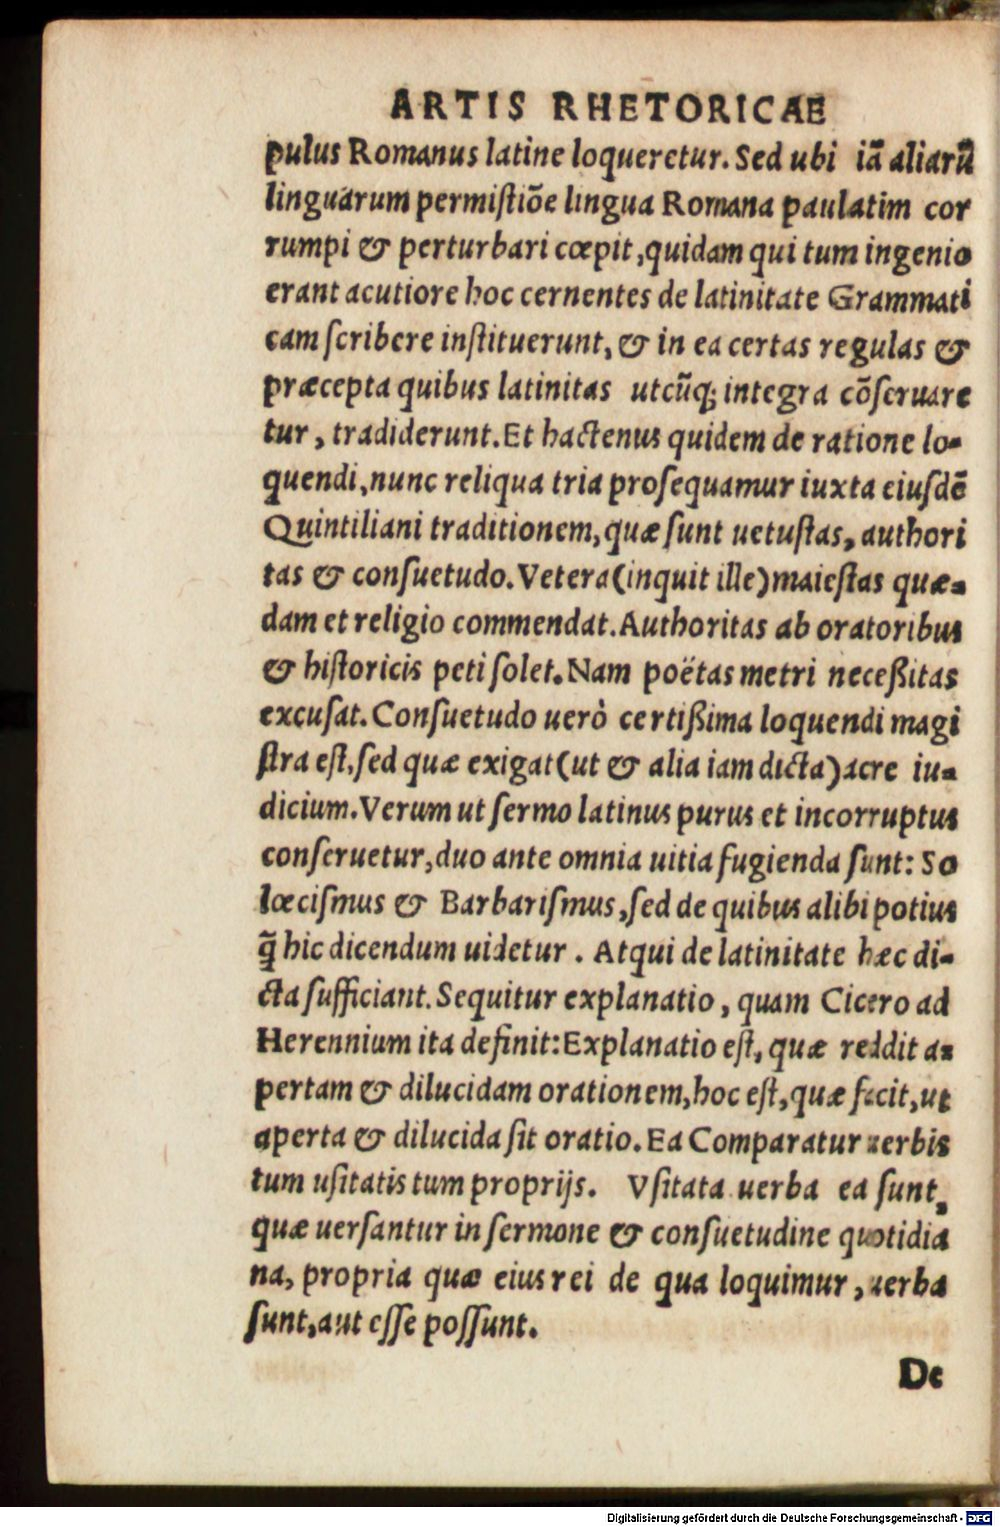 ARTIS RHETORICAE
pulus Romanus latine loqueretur. Sed ubi iã aliarũ
linguarum permiſtiõe lingua Romana paulatim cor
rumpi & perturbari cœpit, quidam qui tum ingenio
erant acutiore hoc cernentes de latinitate Grammati
cam ſcribere inſtituerunt, & in ea certas regulas &
præcepta quibus latinitas utcũq; integra cõſeruare
tur, tradiderunt. Et hactenus quidem de ratione lo-
quendi, nunc reliqua tria proſequamur iuxta eiuſdẽ
Quintiliani traditionem, quæ ſunt uetuſtas, authori
tas & conſuetudo. Vetera (inquit ille) maieſtas quæ-
dam et religio commendat. Authoritas ab oratoribus
& hiſtoricis peti ſolet. Nam poëtas metri neceßitas
excuſat. Conſuetudo uerò certißima loquendi magi
ſtra eſt, ſed quæ exigat (ut & alia iam dicta) acre iu-
dicium. Verum ut ſermo latinus purus et incorruptus
conſeruetur, duo ante omnia uitia fugienda ſunt: So
lœciſmus & Barbariſmus, ſed de quibus alibi potius
q̃ hic dicendum uidetur. Atqui de latinitate hæc di-
cta ſufficiant. Sequitur explanatio, quam Cicero ad
Herennium ita definit: Explanatio eſt, quæ reddit a-
pertam & dilucidam orationem, hoc eſt, quæ facit, ut
aperta & dilucida ſit oratio. Ea Comparatur uerbis
tum uſitatis tum proprijs. Vſitata uerba ea ſunt,
quæ uerſantur in ſermone & conſuetudine quotidia
na, propria quæ eius rei de qua loquimur, uerba
ſunt, aut eſſe poſſunt.
De
Digitalisierung gefördert durch die Deutsche Forschungsgemeinschaft - DFG